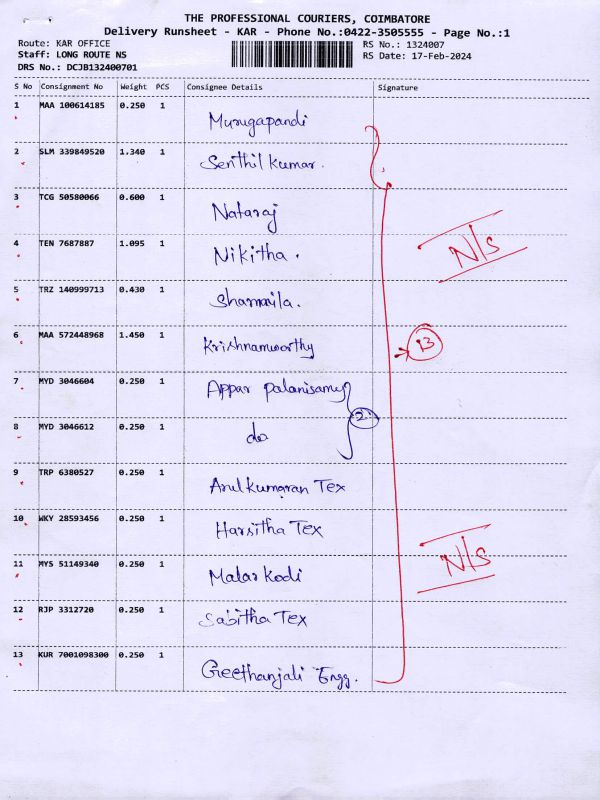 THE PROFESSIONAL COURIERS, COIMBATORE
Delivery Runsheet - KAR - Phone No.:0422-3505555 - Page No.:1
Route: KAR OFFICE
Staff: LONG ROUTE NS
DRS No.: DCJB132400701
RS No.: 1324007
RS Date: 17-Feb-2024
S No Consignment No Weight PCS Consignee Details Signature
1 MAA 100614185 0.250 1 Murugapandi
2 SLM 339849520 1.340 1 Senthil kumar.
3 TCG 50580066 0.600 1 Nataraj
4 TEN 7687887 1.095 1 Nikitha.
N/S
5 TRZ 140999713 0.430 1 Shamila.
6 MAA 572448968 1.450 1 Krishnamoorthy
13
7 MYD 3046604 0.250 1 Appar palanisamy
2
8 MYD 3046612 0.250 1 do
9 TRP 6380527 0.250 1 Arulkumaran Tex
10 WKY 28593456 0.250 1 Harsitha Tex
11 MYS 51149340 0.250 1 Malar kodi
N/S
12 RJP 3312720 0.250 1 Sabitha Tex
13 KUR 7001098300 0.250 1 Geethanjali Engg.